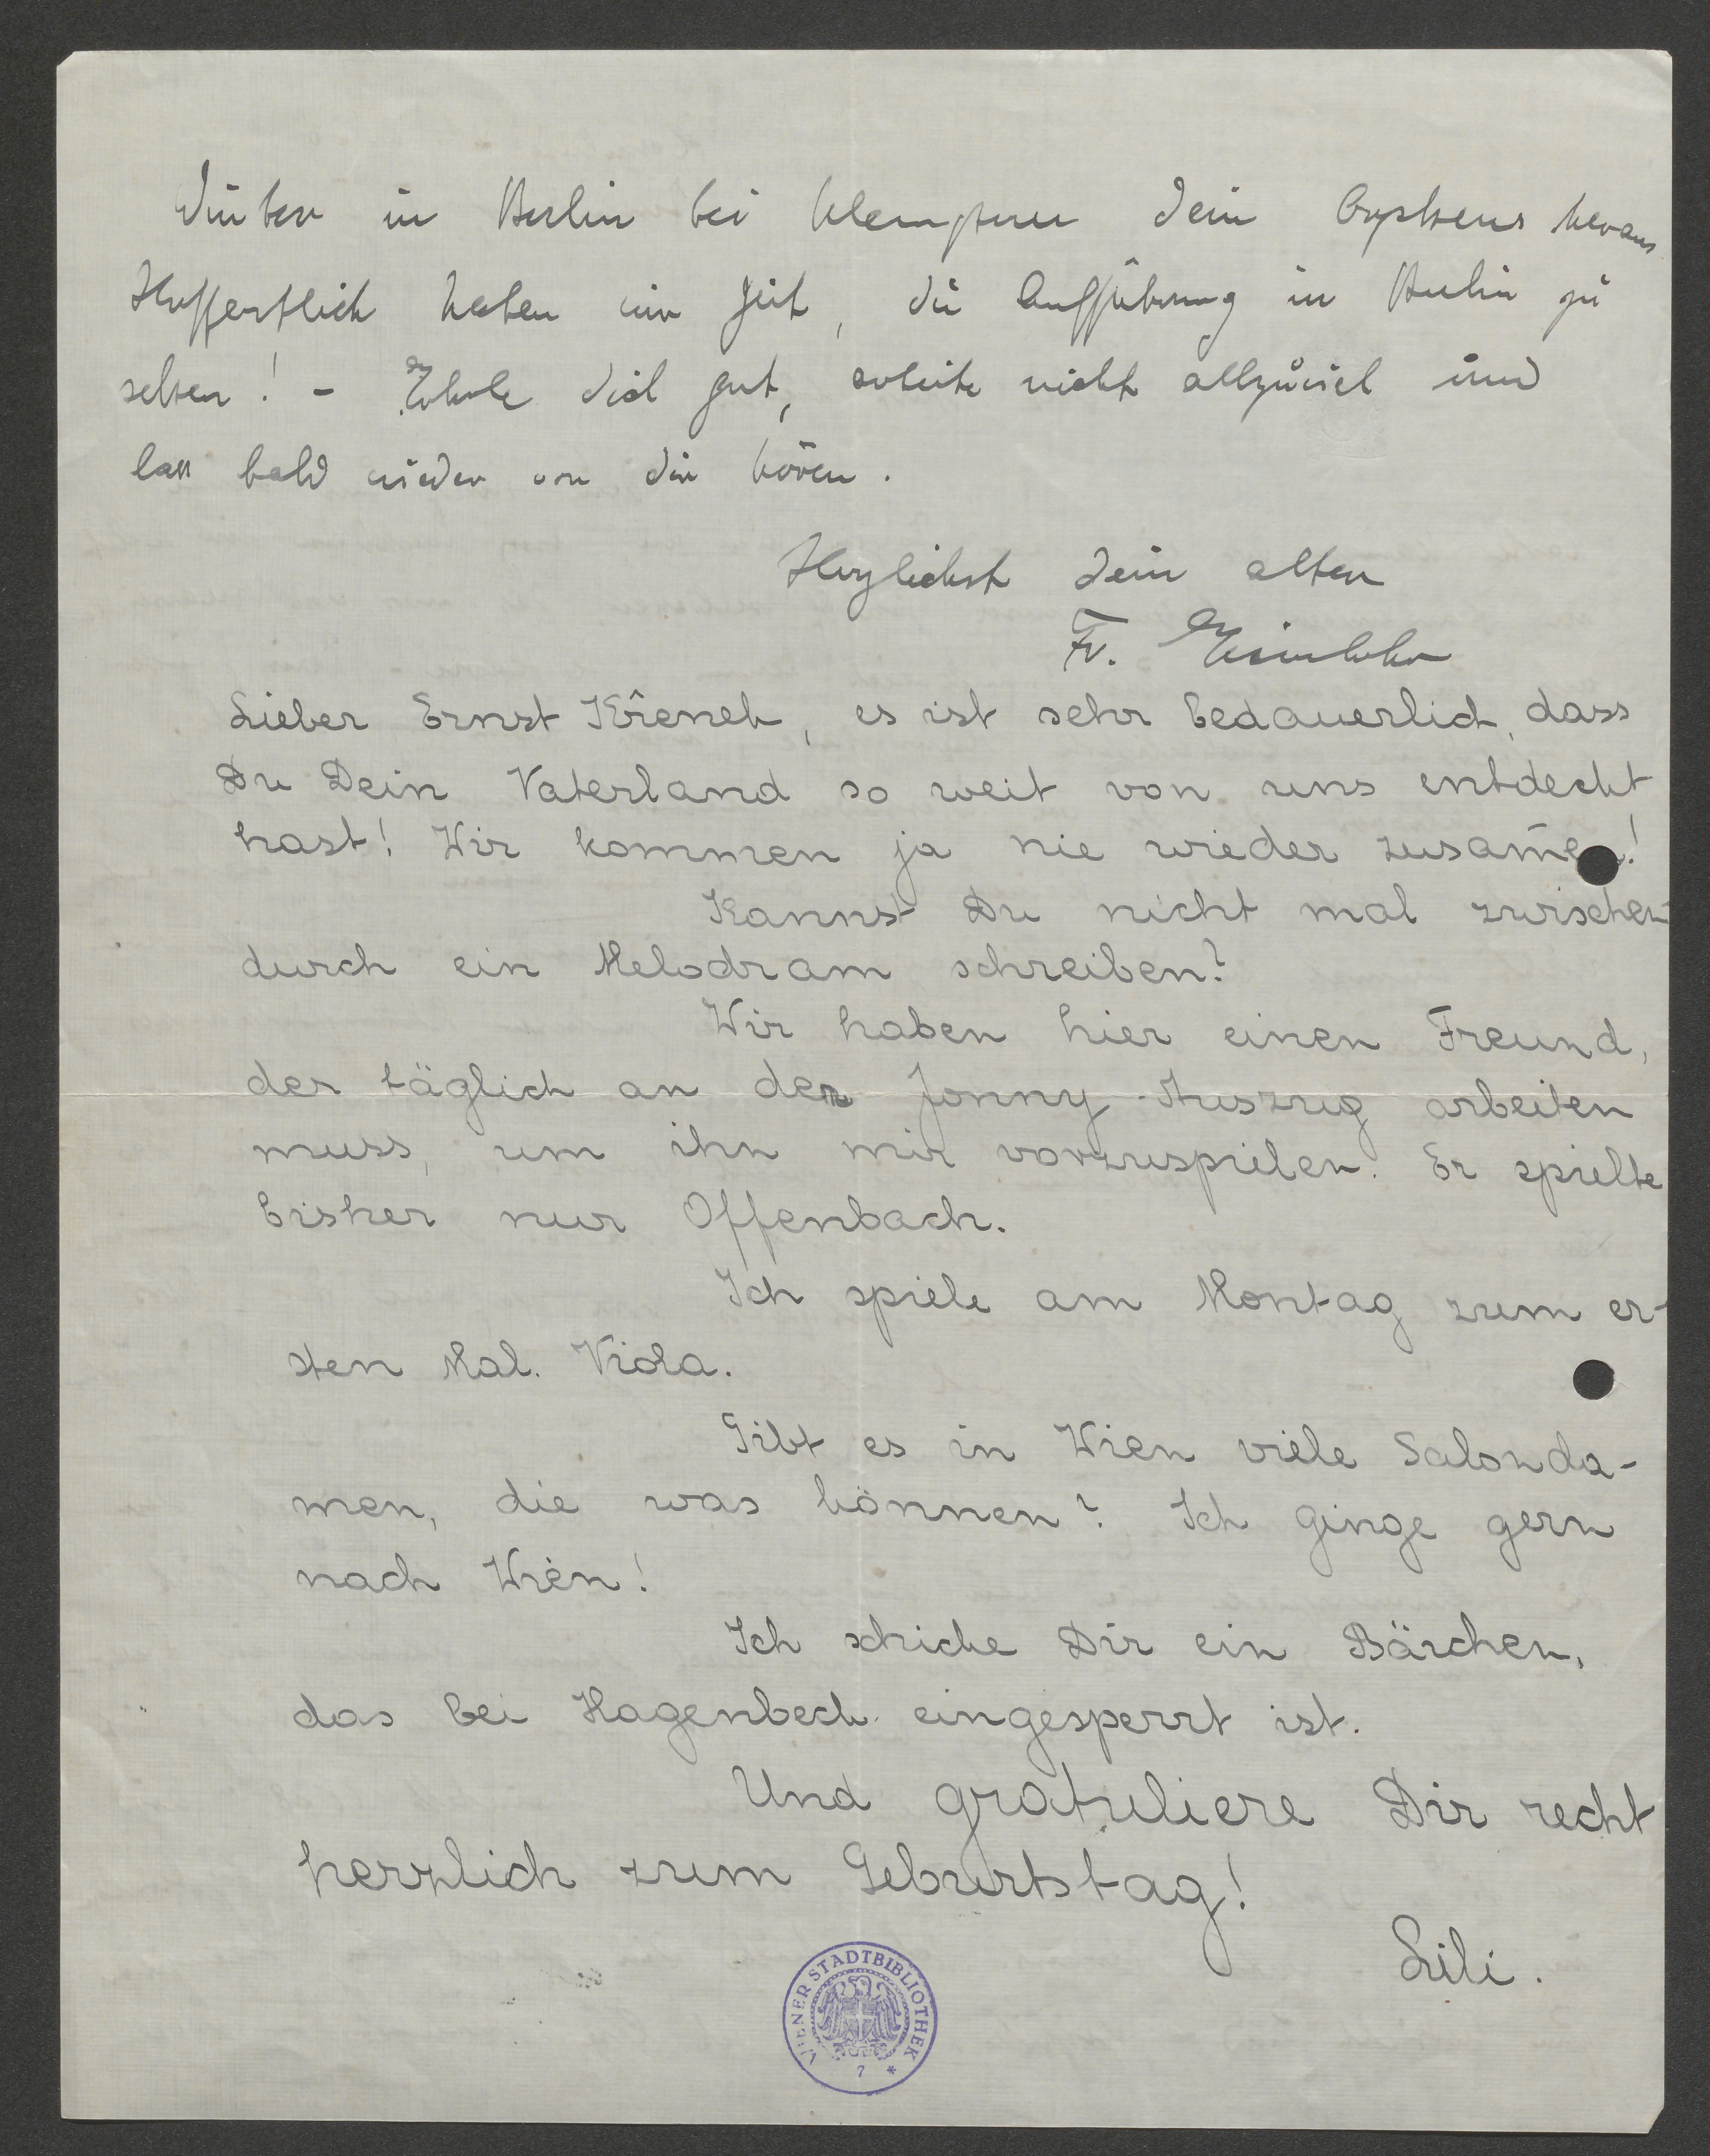 Winter in Berlin bei Klemperer dein Orpheus heraus
Hoffentlich haben wir Zeit, die Aufführung in Berlin zu
sehen! - Erhole dich gut, arbeite nicht allzuviel und
lass bald wieder von dir hören.
Herzlichst dein alter
Fr.
Lieber Ernst Křenek, es ist sehr bedauerlich, dass
Du Dein Vaterland so weit von uns entdeckt
hast! Wir kommen ja nie wieder zusam̄en!
Kannst Du nicht mal zwischen
durch ein Melodram schreiben?
Wir haben hier einen Freund,
der täglich an dem Jonny-Auszug arbeiten
muss, um ihn mir vorzuspielen. Er spielte
bisher nur Offenbach.
Ich spiele am Montag zum er-
sten Mal. Viola.
Gibt es in Wien viele Salonda-
men, die was können? Ich ginge gern
nach Wien!
Ich schicke Dir ein Bärchen,
das bei Hagenbeck eingesperrt ist.
Und gratuliere Dir recht
herzlich zum Geburtstag!
Lili.
WIENER STADTBIBLIOTHEK * 7